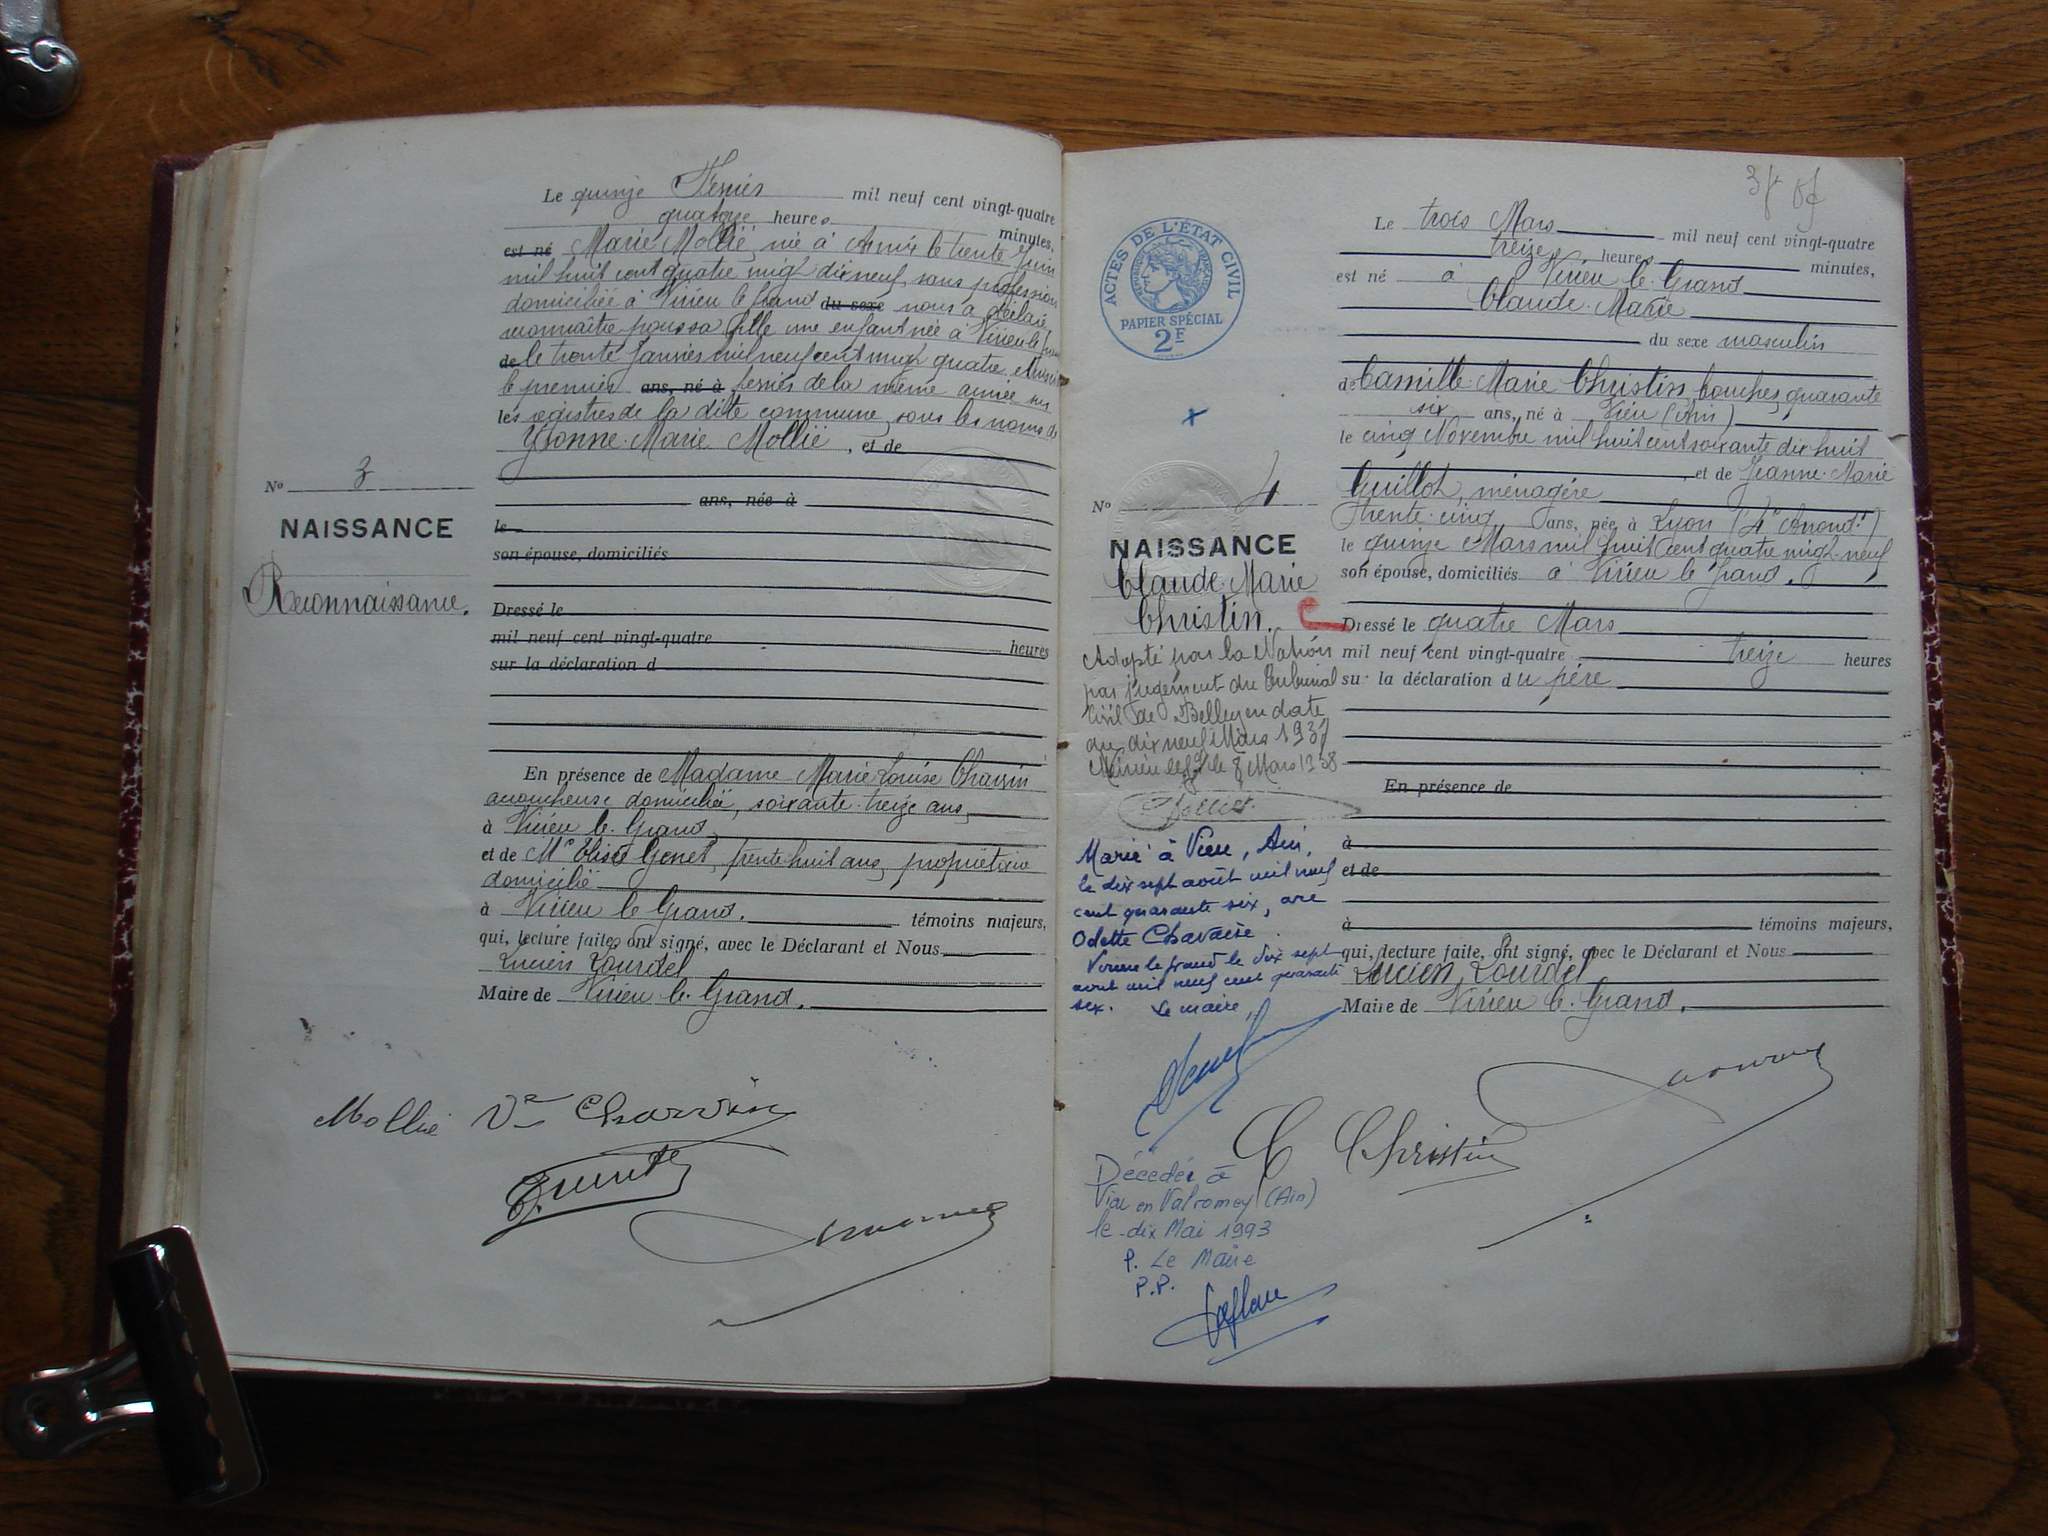 Le quinze Février mil neuf cent vingt-quatre
quatorze heures minutes,
est né Marie Mollié, née à Armix le trente Juin
mil huit cent quatre vingt dix neuf, sans profession
domiciliée à Virieu le Grand du sexe nous a déclaré
reconnaître pour sa fille une enfant née à Virieu le Grand
de le trente Janvier mil neuf cent vingt quatre et inscrit
le premier ans, né à février de la même année sur
les registres de la dite commune, sous les noms de
Yvonne Marie Mollié, et de
Nº 3
ans, née à
NAISSANCE
le
son épouse, domiciliés
Reconnaissance.
Dressé le
mil neuf cent vingt-quatre heures
sur la déclaration d
En présence de Madame Marie Louise Charvin
accoucheuse domiciliée, soixante treize ans,
à Virieu le Grand
et de Mr Elisée Genet, trente huit ans, propriétaire
domicilié
à Virieu le Grand. témoins majeurs,
qui, lecture faite, ont signé, avec le Déclarant et Nous
Lucien Lourdel
Maire de Virieu le Grand.
Mollié Ve Charvin
ACTES DE L'ÉTAT CIVIL
PAPIER SPÉCIAL
2F
Le trois Mars mil neuf cent vingt-quatre
treize heures minutes,
est né à Virieu le Grand
Claude Marie
du sexe masculin
de Camille Marie Christin, boucher, quarante
six ans, né à Vieu (Ain)
le cinq Novembre mil huit cent soixante dix huit
et de Jeanne Marie
Guillot, ménagère
trente cinq ans, née à Lyon (4e Arrondt)
le quinze Mars mil huit cent quatre vingt neuf
son épouse, domiciliés à Virieu le Grand.
Dressé le quatre Mars
mil neuf cent vingt-quatre treize heures
sur la déclaration du père
En présence de
à
et de
à témoins majeurs,
qui, lecture faite, ont signé, avec le Déclarant et Nous
Lucien Lourdel
Maire de Virieu le Grand.
Nº 4
NAISSANCE
Claude Marie
Christin.
Adopté par la Nation
par jugement du Tribunal
Civil de Belley en date
du dix neuf Mars 1937
Virieu le Gd le 8 Mars 1938
Marié à Vieu, Ain,
le dix sept août mil neuf
cent quarante six, avec
Odette Chavaère.
Virieu le grand le dix sept
août mil neuf cent quarante
six. Le maire,
C Christin
Décédé à
Vieu en Valromey (Ain)
le dix Mai 1993
P. Le Maire
P.P.